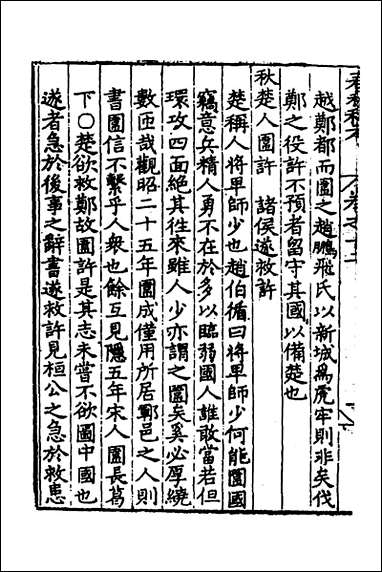 越鄭都而圍之趙鵬飛氏以新城爲虎牢則非矣伐
鄭之役許不預者留守其國以備楚也
秋楚人圍許　諸侯遂救許
楚稱人將卑師少也趙伯循曰將卑師少何能圍國
竊意兵精人勇不在於多以臨弱國人誰敢當若但
環攻四面絶其往來雖人少亦謂之圍矣奚必厚繞
數匝哉觀昭二十五年圍成僅用所居鄆邑之人則
書圍信不繫乎人衆也餘互見隱五年宋人圍長葛
下○楚欲救鄭故圍許是其志未嘗不欲圖中國也
遂者急於後事之辭書遂救許見桓公之急於救患